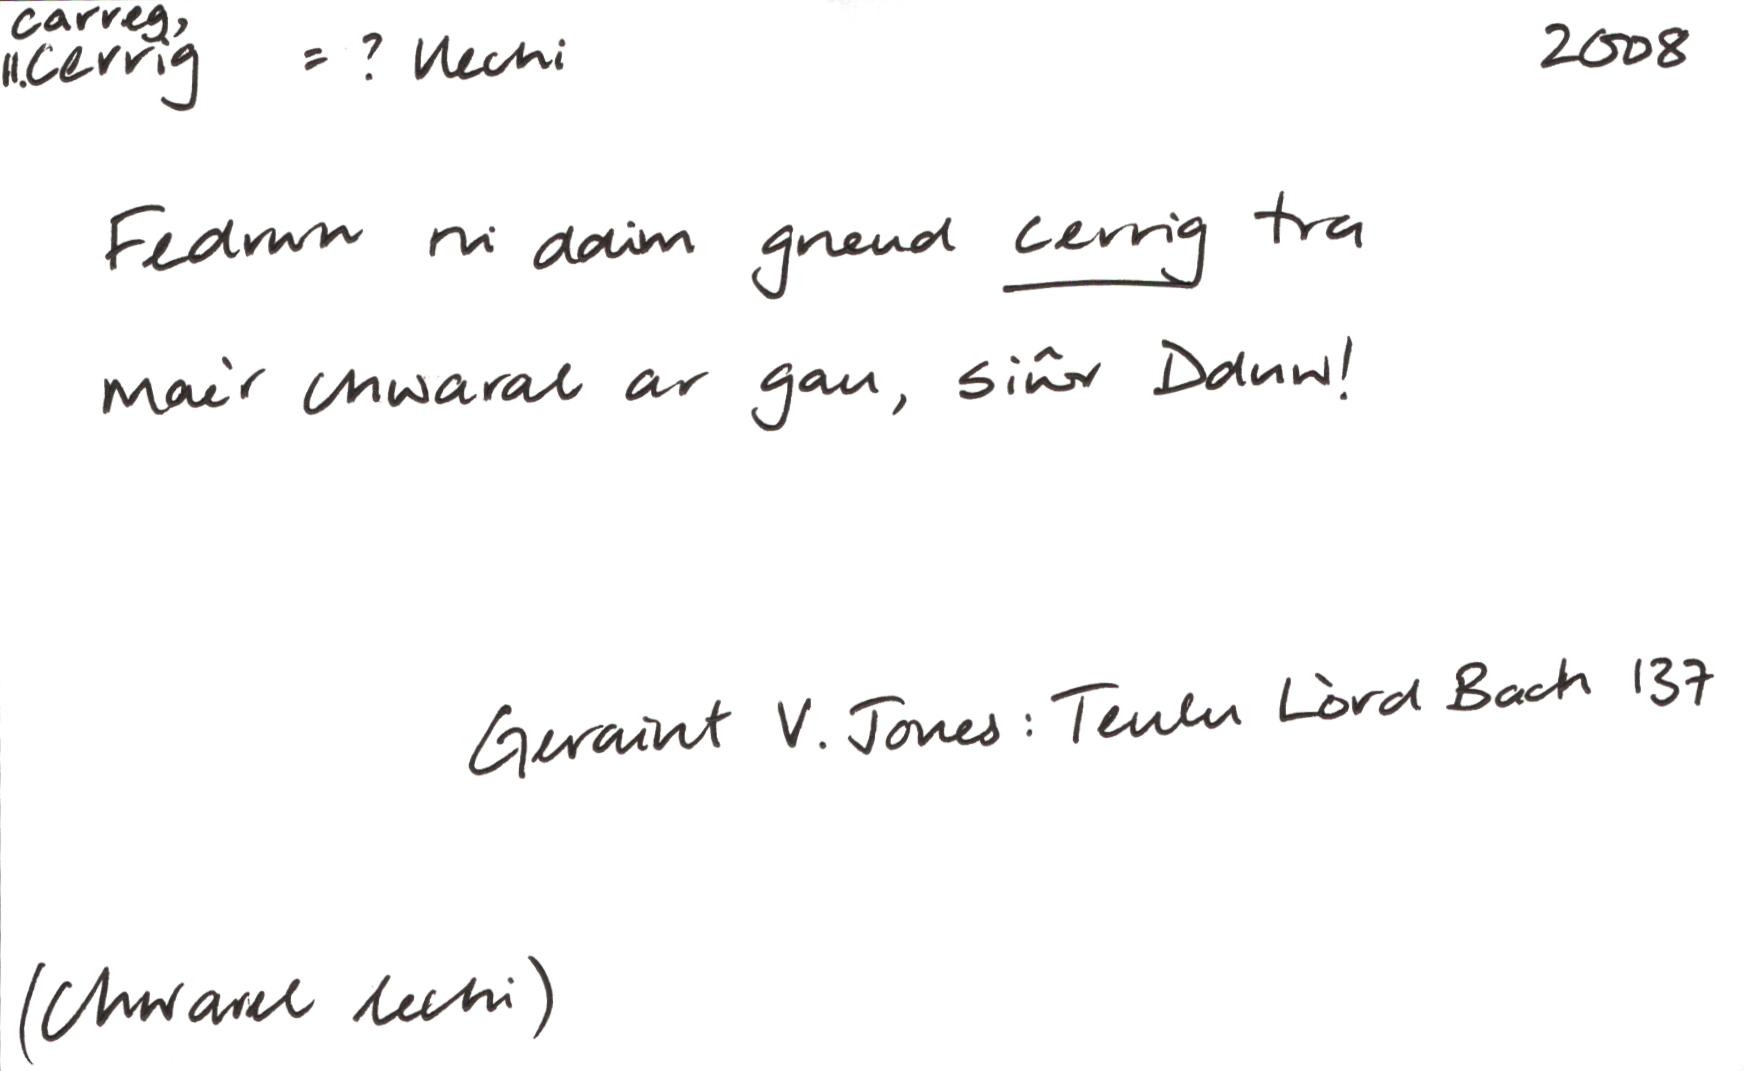 carreg,
ll.cerrig = ? llechi 2008
Fedrwn ni ddim gneud cerrig tra
mae'r chwaral ar gau, siŵr Dduw!
Geraint V. Jones: Teulu Lòrd Bach 137
(Chwarel lechi)